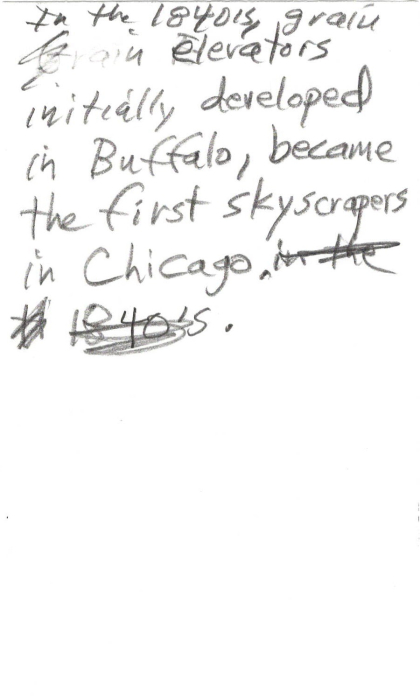 In the 1840's, grain
Grain elevators
initially developed
in Buffalo, became
the first skyscrapers
in Chicago. in the
1840's.